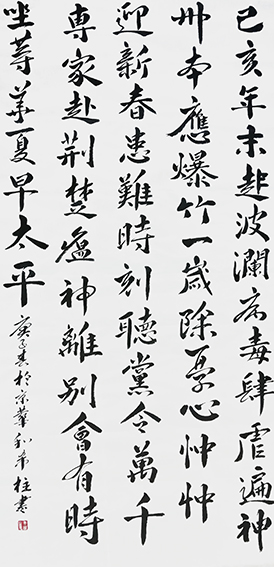 己亥年末起波瀾病毒肆虐遍神
州本應爆竹一歲除憂心忡忡
迎新春患難時刻聽黨令萬千
專家赴荊楚瘟神離別會有時
坐等華夏早太平
庚子春於京華劉希柱書